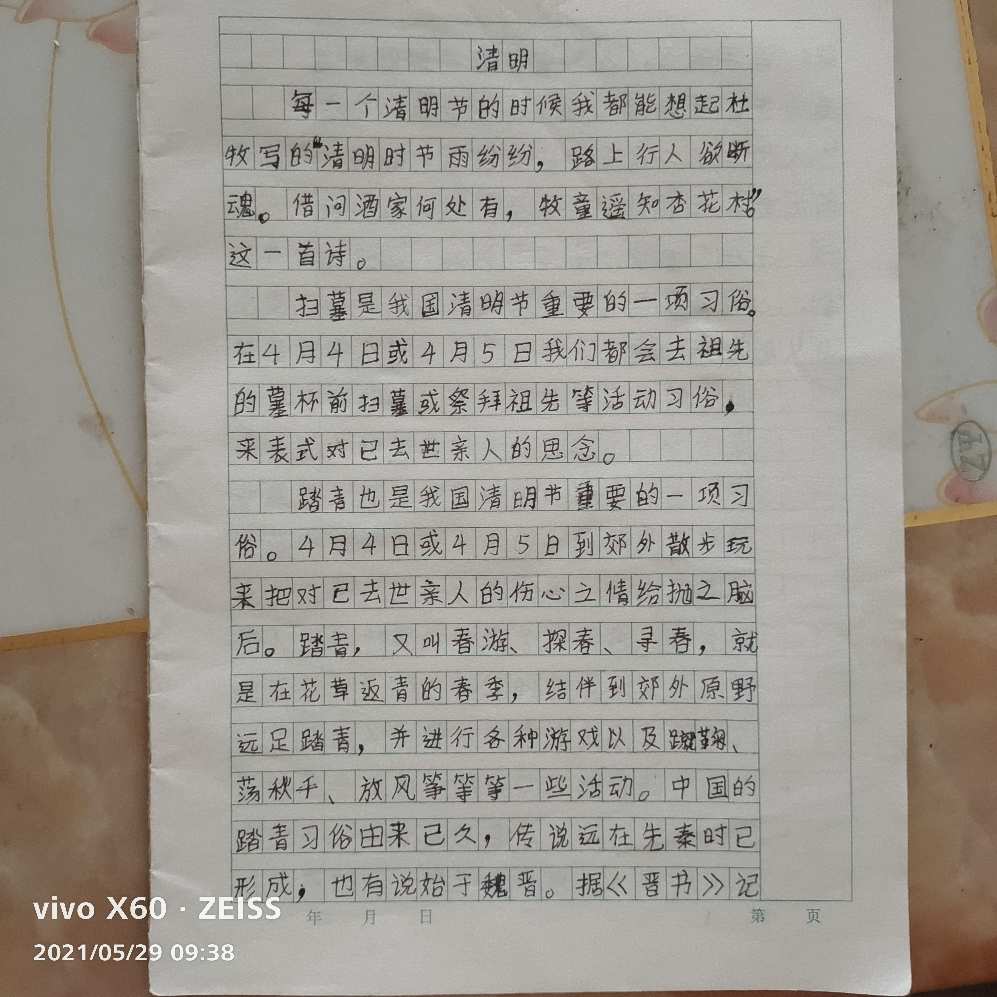 清明
每一个清明节的时候我都能想起杜
牧写的"清明时节雨纷纷，路上行人欲断
魂。借问酒家何处有，牧童遥知杏花村。"
这一首诗。
扫墓是我国清明节重要的一项习俗。
在4月4日或4月5日我们都会去祖先
的墓杯前扫墓或祭拜祖先等活动习俗，
来表式对已去世亲人的思念。
踏青也是我国清明节重要的一项习
俗。4月4日或4月5日到郊外散步玩
来把对已去世亲人的伤心之情给抛之脑
后。踏青，又叫春游、探春、寻春，就
是在花草返青的春季，结伴到郊外原野
远足踏青，并进行各种游戏以及蹴鞠、
荡秋千、放风筝等等一些活动。中国的
踏青习俗由来已久，传说远在先秦时已
形成，也有说始于魏晋。据《晋书》记
年 月 日 第 页
vivo X60 · ZEISS
2021/05/29 09:38